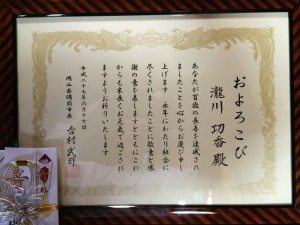 およろこび
瀧川 功香 殿
あなたが百歳の長寿を達成され
ましたことを心からお慶び申し
上げます 永年にわたり社会に
尽くされましたことに敬意と感
謝の意を表しますとともにこれ
からも末長くお元気で過ごされ
ますようお祈りいたします
平成二十七年六月十七日
岡山県備前市長 吉村武司